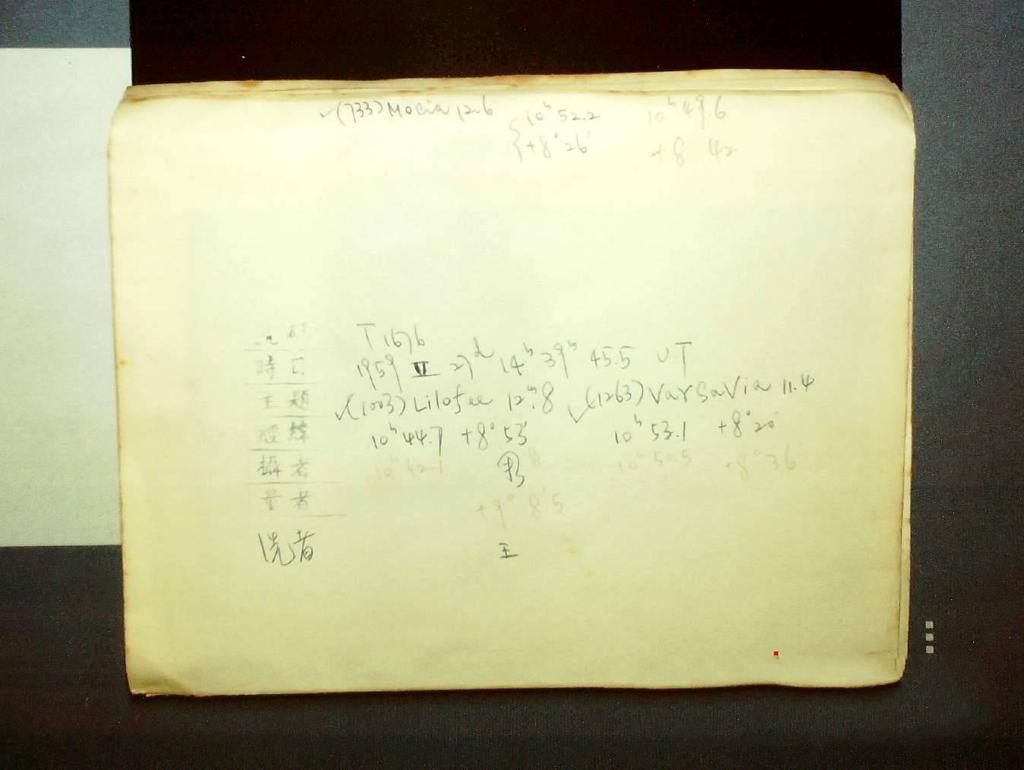 ✓(733) Mocia 12.6 10ʰ 52.2 10ʰ 49.6
{+8° 26′ +8 42
T 1676
時日 1959 Ⅲ 27ᵈ 14ʰ 39ᵐ 45.5 UT
主題 ✓(1003) Lilofee 12ᵐ.8 ✓(1263) Varsavia 11.4
經緯 10ʰ 44.7 +8° 53′ 10ʰ 53.1 +8° 20′
攝者 10ʰ 42.1 10ʰ 50.5 +8° 36
量者 +9° 8.5
洗者 王